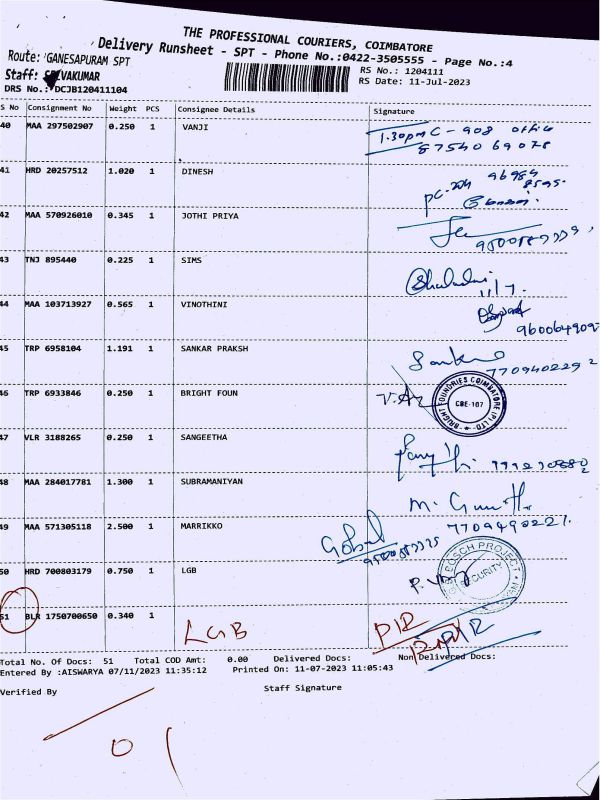 THE PROFESSIONAL COURIERS, COIMBATORE
Delivery Runsheet - SPT - Phone No.:0422-3505555 - Page No.:4
Route: GANESAPURAM SPT
Staff:
DRS No.: DCJB120411104
RS No.: 1204111
RS Date: 11-Jul-2023
S No Consignment No Weight PCS Consignee Details Signature
40 MAA 297502907 0.250 1 VANJI 1.30pm C - 908 office
87540 69078
41 HRD 20257512 1.020 1 DINESH
42 MAA 570926010 0.345 1 JOTHI PRIYA
43 TNJ 895440 0.225 1 SIMS
11/7
44 MAA 103713927 0.565 1 VINOTHINI
960064909
45 TRP 6958104 1.191 1 SANKAR PRAKSH
770940229 2
46 TRP 6933846 0.250 1 BRIGHT FOUN BRIGHT FOUNDRIES COIMBATORE (P) LTD
CBE-107
47 VLR 3188265 0.250 1 SANGEETHA
48 MAA 284017781 1.300 1 SUBRAMANIYAN
49 MAA 571305118 2.500 1 MARRIKKO 7709490221.
50 HRD 700803179 0.750 1 LGB BOSCH PROJECT
SECURITY
51 BLR 1750700650 0.340 1 LGB
Total No. Of Docs: 51 Total COD Amt: 0.00 Delivered Docs: Non Delivered Docs:
Entered By :AISWARYA 07/11/2023 11:35:12 Printed On: 11-07-2023 11:05:43
Verified By Staff Signature
01